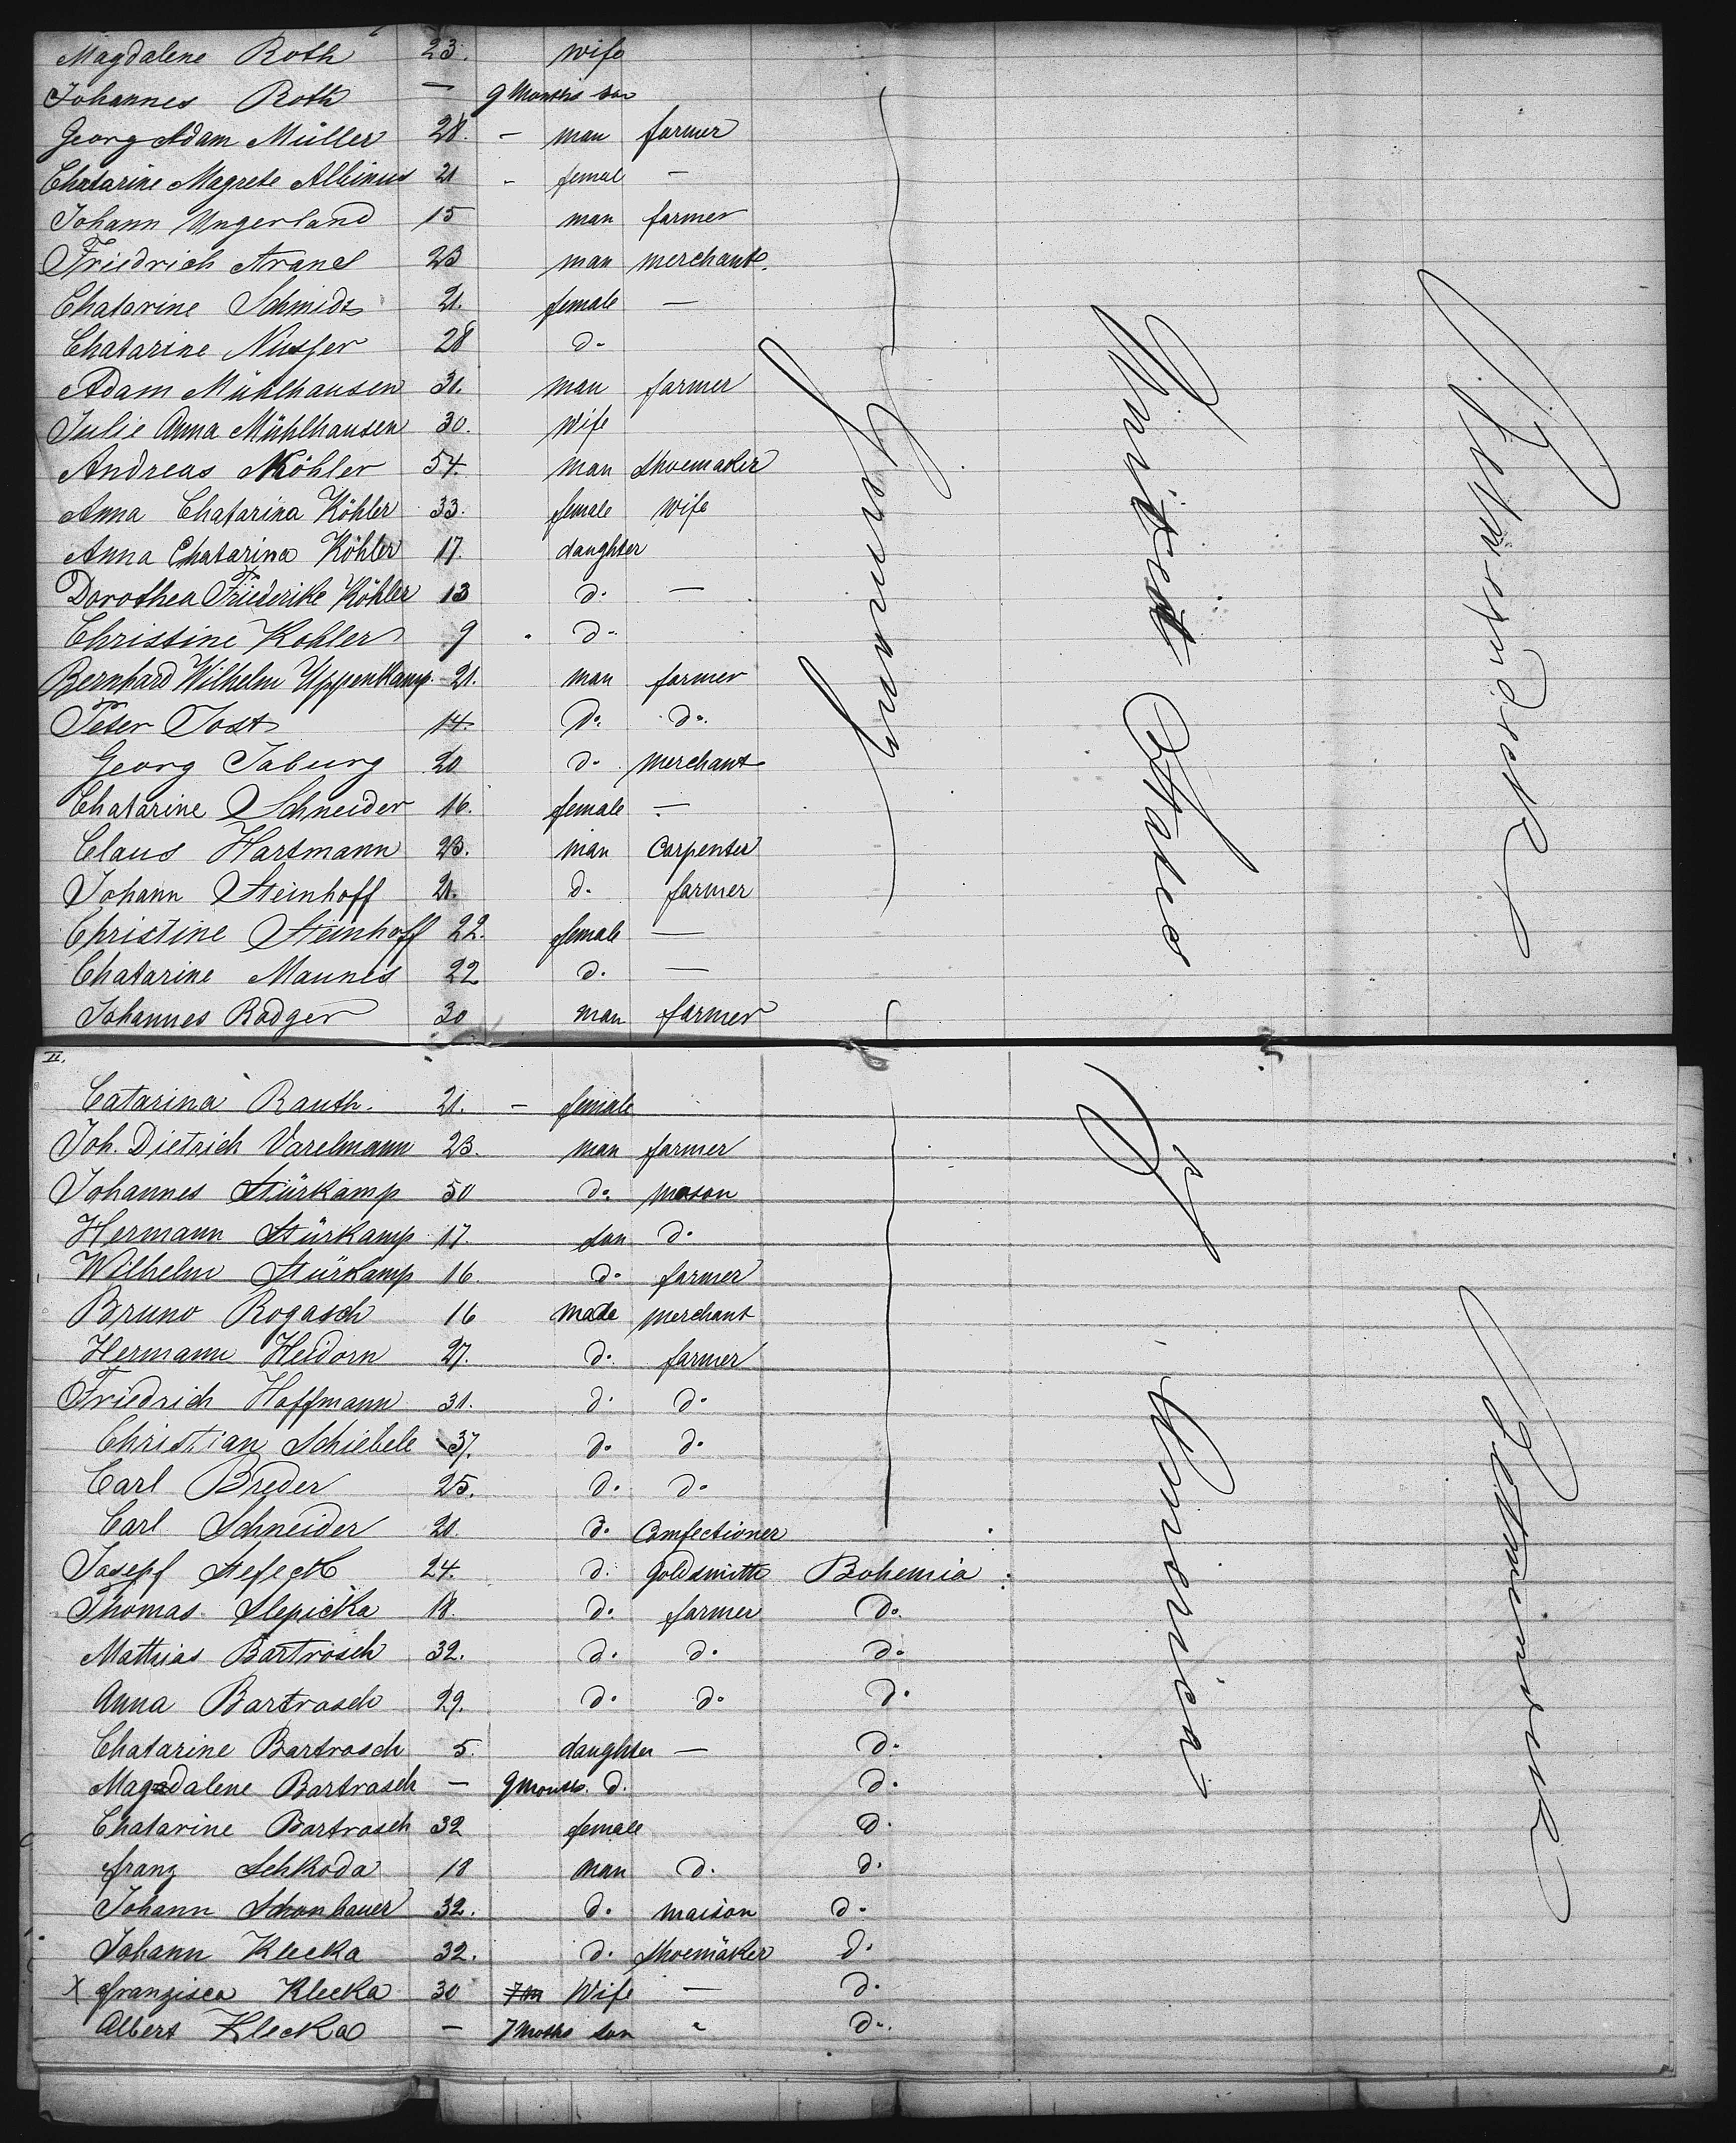 Magdalene Roth 23. wife
Johannes Roth — 9 Months son
Georg Adam Müller 28. – man farmer
Chatarine Magrete Albinus 21 - femal —
Johann Ungerland 15 man farmer
Friedrich Arand 23 man merchant.
Chatarine Schmidt 21. female —
Chatarine Nusser 28 do
Adam Mühlhausen 31. man farmer
Julie Anna Mühlhausen 30. wife
Andreas Köhler 54. man shoemaker
Anna Chatarina Köhler 33. female wife
Anna Chatarina Köhler 17. daughter
Dorothea Friederike Köhler 13 do —
Christine Kohler 9 do
Bernhard Wilhelm Uppenkamp 21. man farmer
Peter Jost 14. do do
Georg Jaburg 20 do merchant
Chatarine Schneider 16. female —
Claus Hartmann 23. man Carpenter
Johann Steinhoff 21. do farmer
Christine Steinhoff 22. female —
Chatarine Maunes 22 do —
Johannes Rodger 30 man farmer
Germany
United States
II.
Catarina Rauth. 21. – female
Joh. Dietrich Varelmann 23. man farmer
Johannes Stürkamp 50 do mason
Hermann Stürkamp 17. son do
Wilhelm Stürkamp 16. do farmer
Bruno Rogasch 16 male merchant
Hermann Heidorn 27. do farmer
Friedrich Hoffmann 31. do do
Christian Schiebele 37. do do
Carl Breder 25. do do
Carl Schneider 21. do Confectioner
Josepf Stefeck 24. do Goldsmith Bohemia
Thomas Slepicka 18. do farmer do
Mathias Bartrosch 32. do do do
Anna Bartrosch 29. do do do
Chatarine Bartrosch 5. daughter — do
Magdalene Bartrosch — 9 months. do do
Chatarine Bartrosch 32 female do
franz Schkoda 18 man do do
Johann Schonbauer 32. do maison do
Johann Klecka 32. do shoemaker do
X franzisca Klecka 30 7m Wife — do
Albert Klecka — 7 Moths son " do
of America